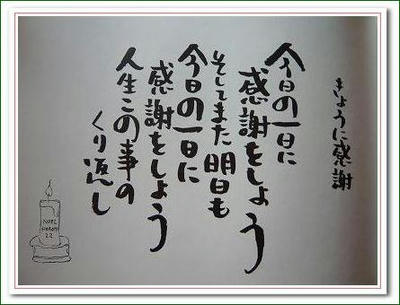 きょうに感謝
今日の一日に
感謝をしよう
そしてまた明日も
今日の一日に
感謝をしよう
人生この事の
くり返し